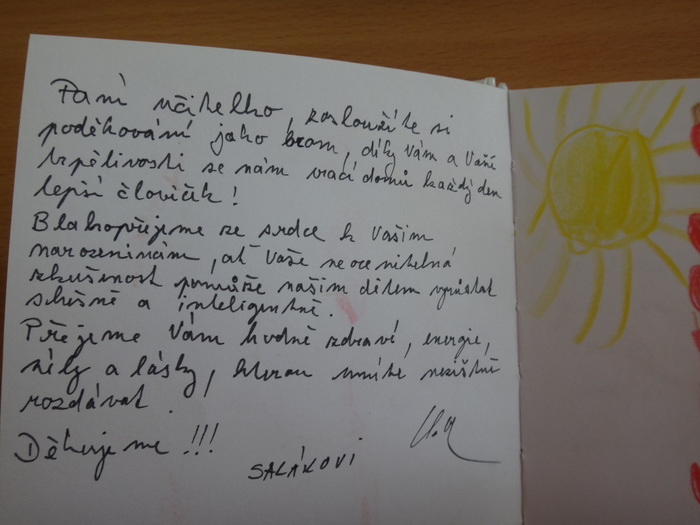 Paní učitelko, zasloužíte si
poděkování jako hrom, díky Vám a Vaší
trpělivosti se nám vrací domů každý den
lepší človíček!
Blahopřejeme ze srdce k Vašim
narozeninám, ať Vaše neocenitelná
zkušenost pomůže našim dětem vyrůstat
slušně a inteligentně.
Přejeme Vám hodně zdraví, energie,
síly a lásky, kterou umíte nezištně
rozdávat.
Děkujeme!!!
SALÁKOVI